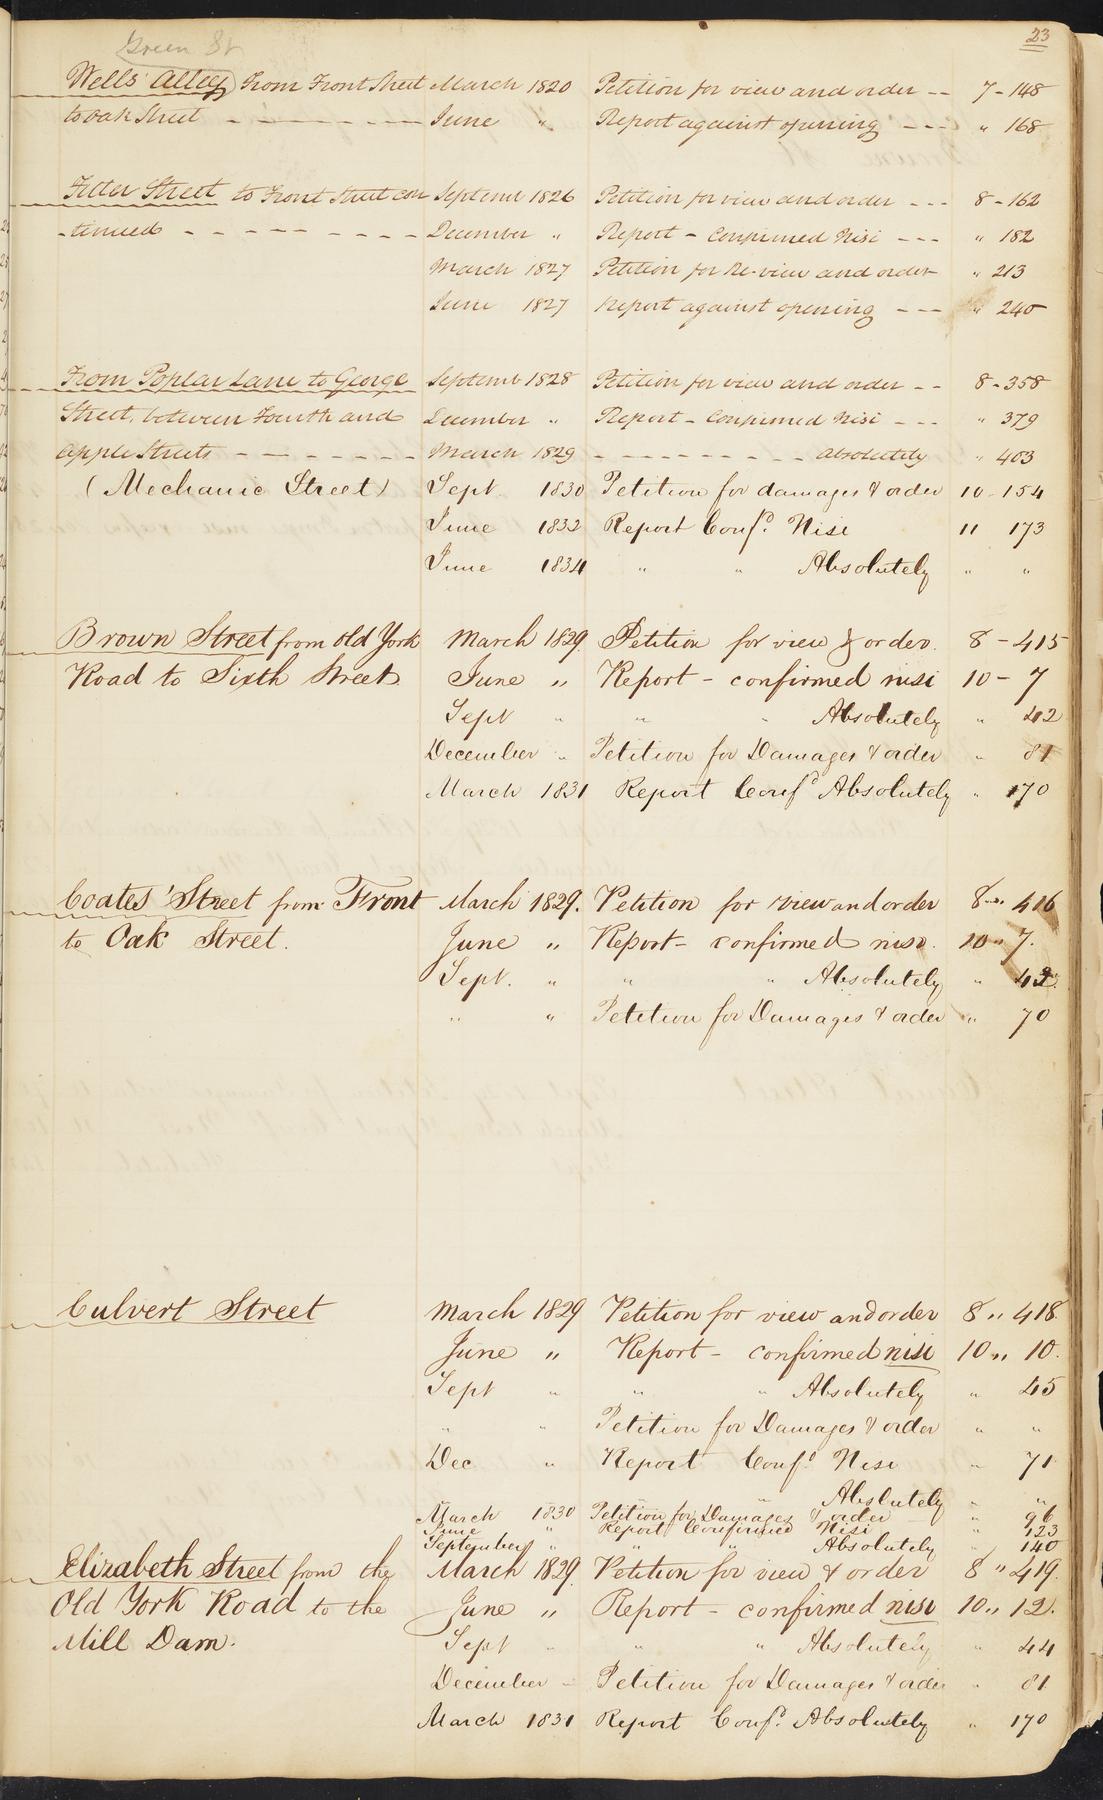 23
Green St
Wells' Alley from Front Street March 1820 Petition for view and order -- 7-148
to Oak Street - - - - - June " Report against opening --- " 168
Fetter Street to Front Street con Septemr 1826 Petition for view and order --- 8-162
-tinued - - - - - - - - December " Report - Confirmed Nisi --- " 182
March 1827 Petition for Re-view and order- " 213
June 1827 Report against opening --- " 240
From Poplar Lane to George Septemb 1828 Petition for view and order -- 8-358
Street, between Fourth and December " Report - Confirmed Nisi --- " 379
Apple Streets - - - - - - March 1829 - - - - - - - - - Absolutely " 403
(Mechanic Street) Sept. 1830 Petition for damages & order 10-154
June 1832 Report Confd. Nisi 11 173
June 1834 " " Absolutely " "
Brown Street from old York March 1829 Petition for view & order. 8-415
Road to Sixth Street June " Report - confirmed nisi 10-7
Sept " " " Absolutely " 42
December " Petition for Damages & order " 81
March 1831 Report Confd Absolutely " 170
Coates' Street from Front March 1829. Petition for view and order 8 " 416
to Oak Street. June " Report - confirmed nisi. 10 " 7.
Sept. " " " Absolutely " 42
" " Petition for Damages & order " 70
Culvert Street March 1829 Petition for view and order 8 " 418.
June " Report - confirmed nisi 10 " 10.
Sept " " " Absolutely " 45
" " Petition for Damages & order " "
Dec " Report Confd Nisi " 71
" Absolutely " "
March 1830 Petition for Damages & order " 96
June " Report Confirmed Nisi " 123
September " " " Absolutely " 140
Elizabeth Street from the March 1829. Petition for view & order 8 " 419.
Old York Road to the June " Report - confirmed nisi 10 " 12.
Mill Dam. Sept " " " Absolutely " 44
December - Petition for Damages & order " 81
March 1831 Report Confd. Absolutely " 170